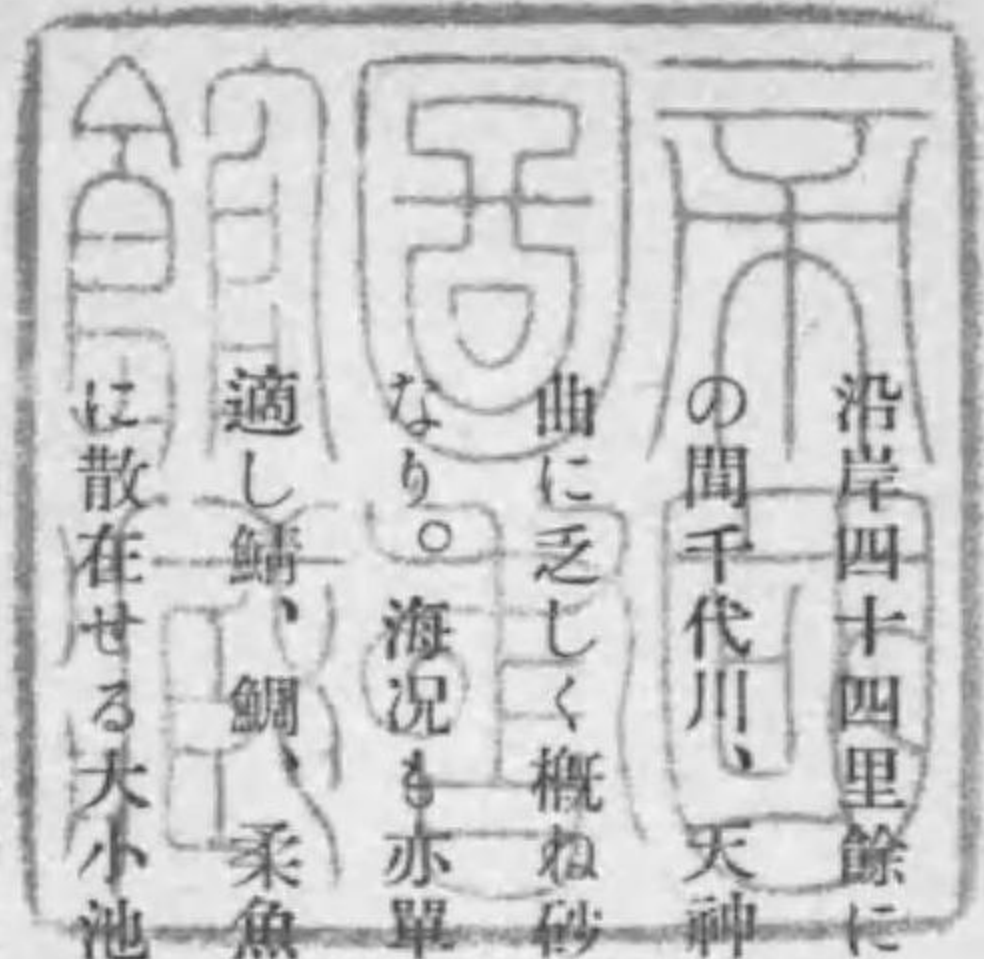 帝國
圖書
館藏
沿岸四十四里餘に
の間千代川、天神
曲に乏しく概ね砂
なり。海況も亦單
適し鯖、鯛、柔魚
に散在せる大小池